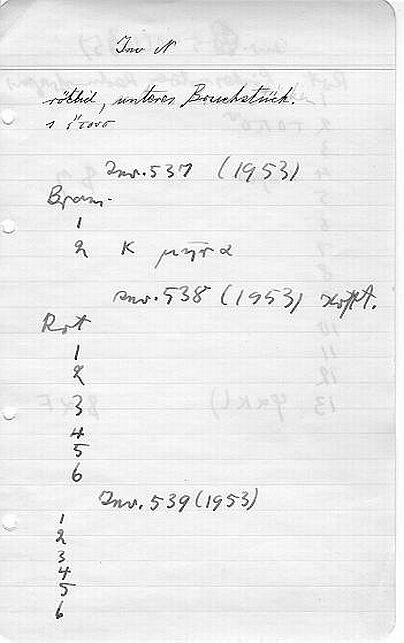 Inv N
rötlich, unteres Bruchstück.
Inv. 537 (1953)
Braun.
1
2 K
Inv. 538 (1953) kopt.
Rot
1
2
3
4
5
6
Inv. 539 (1953)
1
2
3
4
5
6